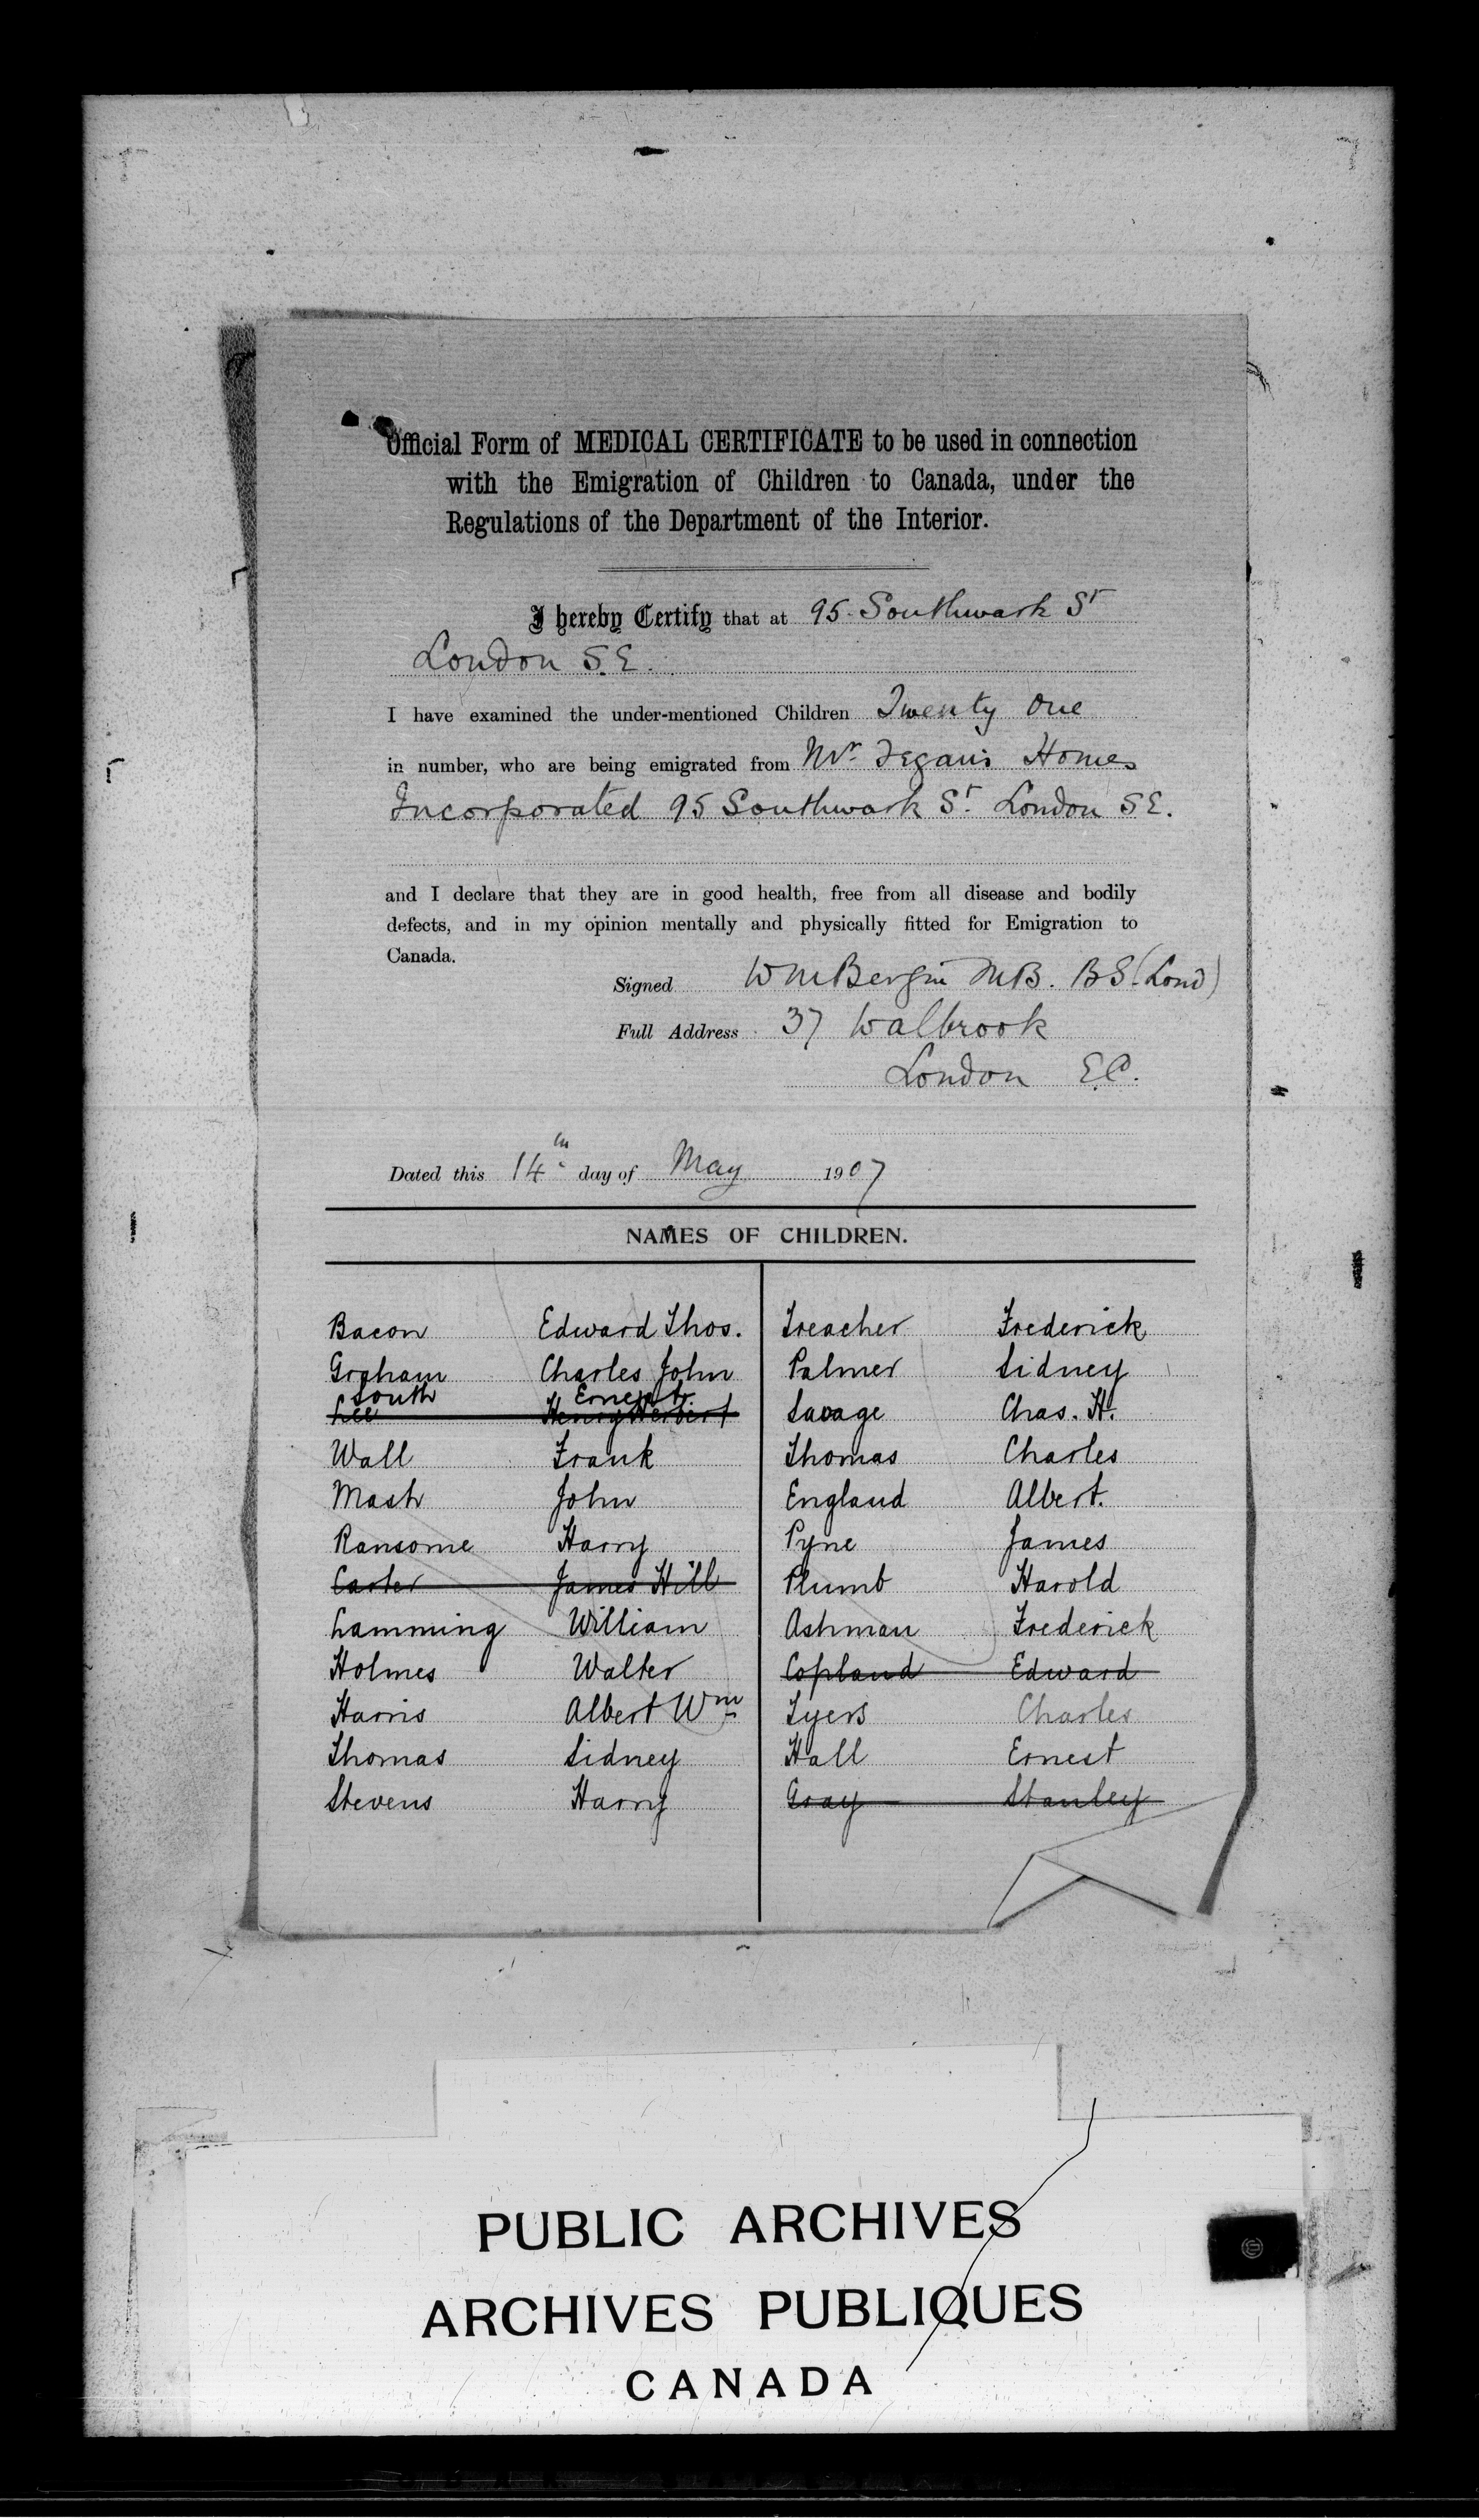 Official Form of MEDICAL CERTIFICATE to be used in connection
with the Emigration of Children to Canada, under the
Regulations of the Department of the Interior.
I hereby Certify that at 95 Southwark St
London S.E.
I have examined the under-mentioned Children Twenty One
in number, who are being emigrated from Mr. Fegan's Homes
Incorporated 95 Southwark St. London SE.
and I declare that they are in good health, free from all disease and bodily
defects, and in my opinion mentally and physically fitted for Emigration to
Canada.
Signed WmBergin MB. BS. (Lond)
Full Address 37 Walbrook
London E.C.
Dated this 14th day of May 1907
NAMES OF CHILDREN.
Bacon Edward Thos.
Graham Charles John
South Ernest
Lee Henry Herbert
Wall Frank
Mash John
Ransome Harry
Carter James Hill
Lamming William
Holmes Walter
Harris Albert Wm
Thomas Sidney
Stevens Harry
Treacher Frederick
Palmer Sidney
Savage Chas. H.
Thomas Charles
England Albert.
Pyne James
Plumb Harold
Ashman Frederick
Copland Edward
Tyers Charles
Hall Ernest
Gray Stanley
PUBLIC ARCHIVES
ARCHIVES PUBLIQUES
CANADA